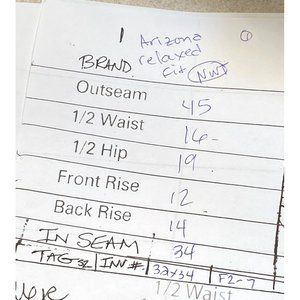 1 Arizona ①
BRAND relaxed
fit NWT
Outseam 45
1/2 Waist 16-
1/2 Hip 19.
Front Rise 12.
Back Rise 14
IN SEAM 34
TAG SZ INV #: 32x34 F2-7
1/2 Waist